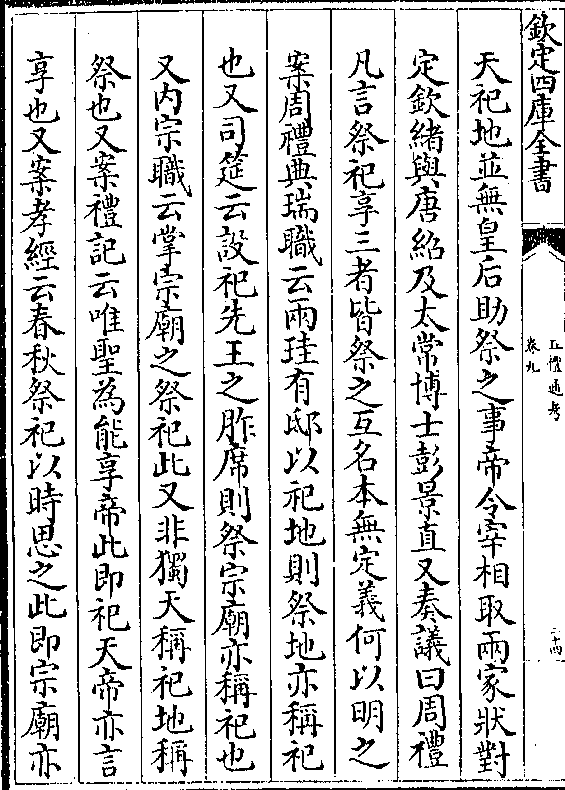 欽定四庫全書
五禮通考
卷九
三十四
天祀地並無皇后助祭之事帝令宰相取兩家狀對
定欽緒與唐紹及太常博士彭景直又奏議曰周禮
凡言祭祀享三者皆祭之互名本無定義何以明之
案周禮典瑞職云兩珪有邸以祀地則祭地亦稱祀
也又司筵云設祀先王之胙席則祭宗廟亦稱祀也
又内宗職云掌宗廟之祭祀此又非獨天稱祀地稱
祭也又案禮記云唯聖為能享帝此即祀天帝亦言
享也又案孝經云春秋祭祀以時思之此即宗廟亦